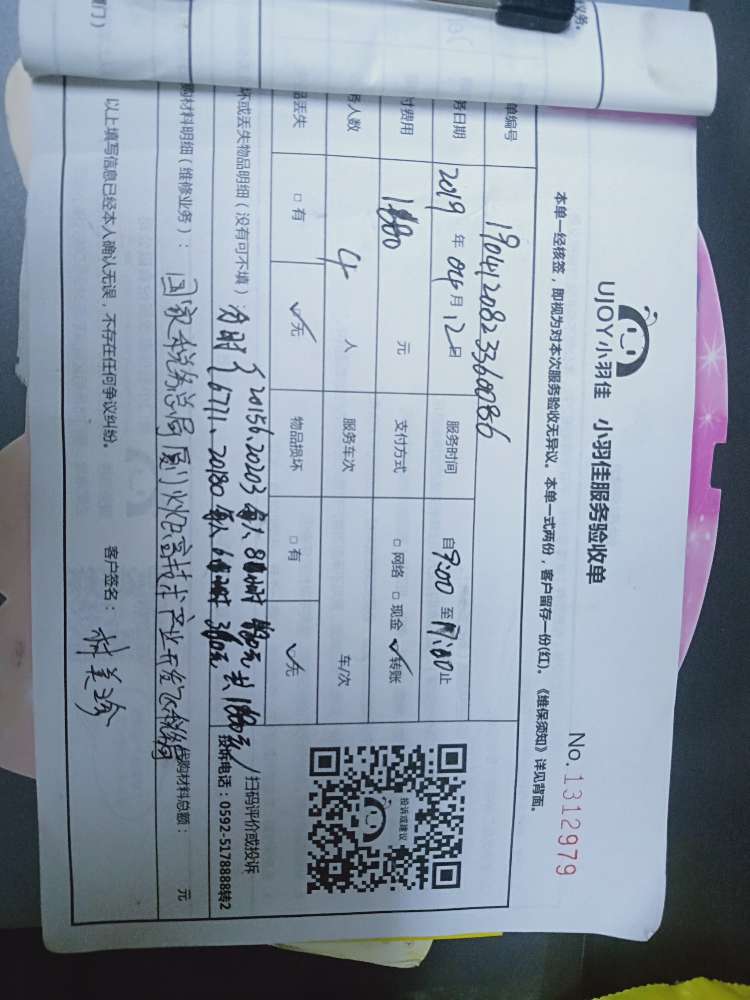 UJOY小羽佳 小羽佳服务验收单
No.1312979
本单一经核签，即视为对本次服务验收无异议。本单一式两份，客户留存一份(红)。《维保须知》详见背面。
单编号 19041208233600086
务日期 2019 年 04 月 12 日 服务时间 自 9:00 至 17:00 止
付费用 元 支付方式 □ 网络 □ 现金 ✓转账
务人数 4 人 服务车次 车/次
品丢失 □ 有 ✓无 物品损坏 □ 有 ✓无
投诉或建议
扫码评价或投诉
投诉电话：0592-5178888转2
坏或丢失物品明细（没有可不填）：
20156、20203 每人
6711、20180 每人
购材料明细（维修业务）： 国家税务总局厦门火炬高技术产业开发区税务局
购材料总额： 元
以上填写信息已经本人确认无误，不存在任何争议纠纷。 客户签名：